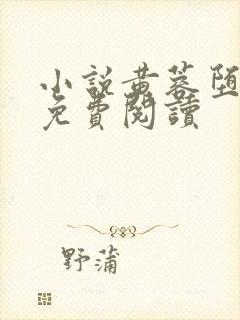 小說黃蓉墮
免費閱讀
野蒲